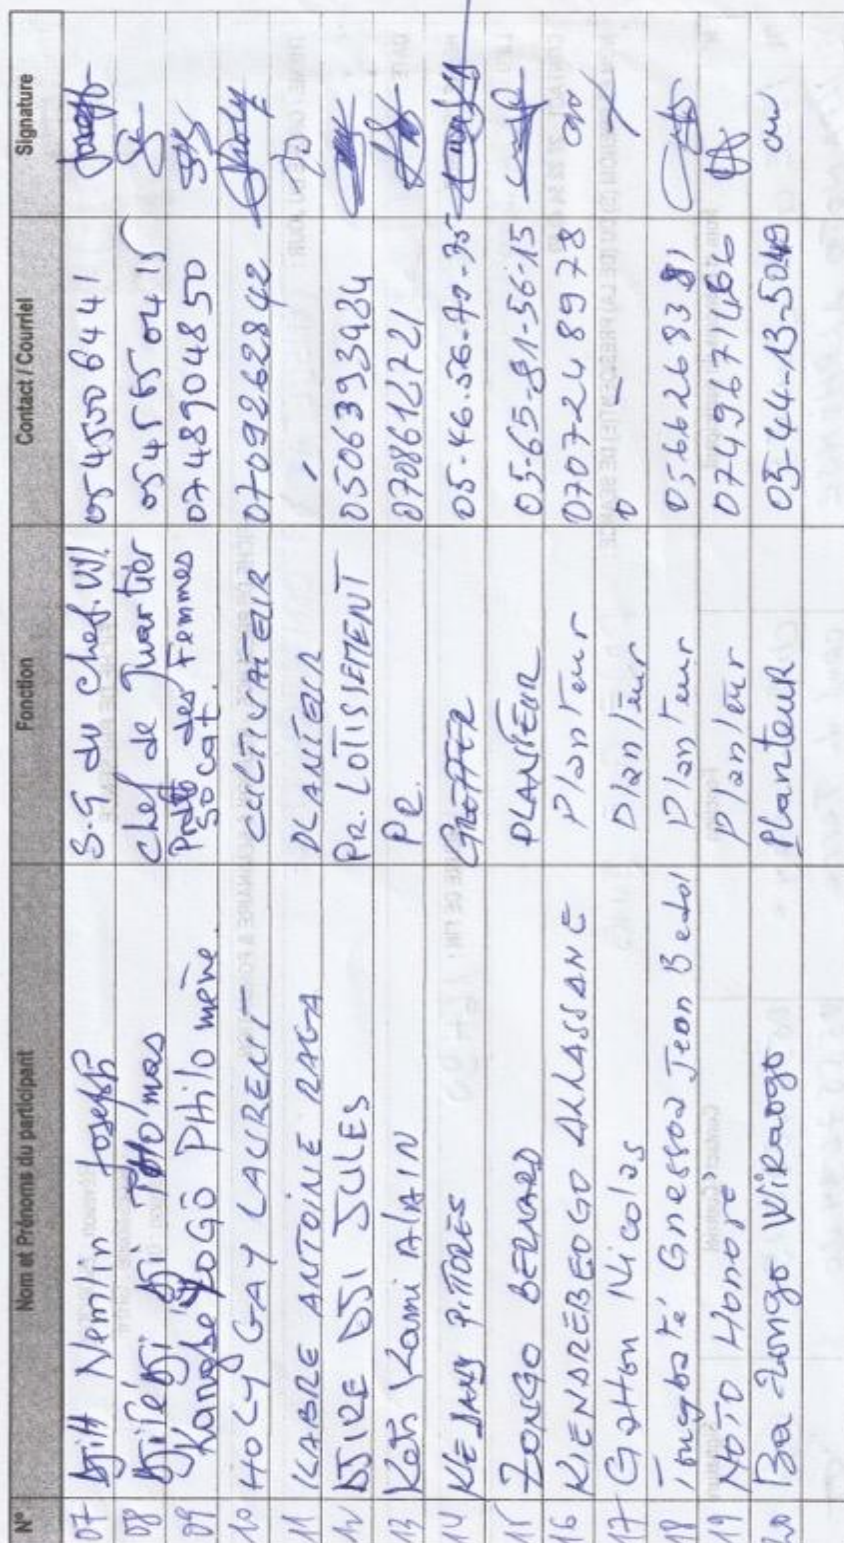 N° Nom et Prénoms du participant Fonction Contact / Courriel Signature
07 Djitt Nemlin Joseph S.G du Chef. Vil. 0545006441
08 Djirébji Bji THOmas Chef de Quartier
09 Kangbe ZOGO PHilomène. Prdte des Femmes So cat. 0748904850
10 HOCY GAY LAURENT CULTIVATEUR 0709262842
11 KABRE ANTOINE RAGA PLANTEUR -
12 DJIRE DJI JULES PR. LOTISSEMENT
13 Koti Kami AlAIN PR. 0708612721
14 05-46-56-70-75
15 ZONGO BERNARD PLANTEUR 05-65-91-56-15
16 KIENDREBEOGO ALLASSANE Planteur 0707248978
17 Gatton Nicolas Planteur
18 Gnessoa Jean Planteur 0566269381
19 NOTO Honoré Planteur
20 Ba-Zongo Wiraogo Planteur 05-44-13-5049